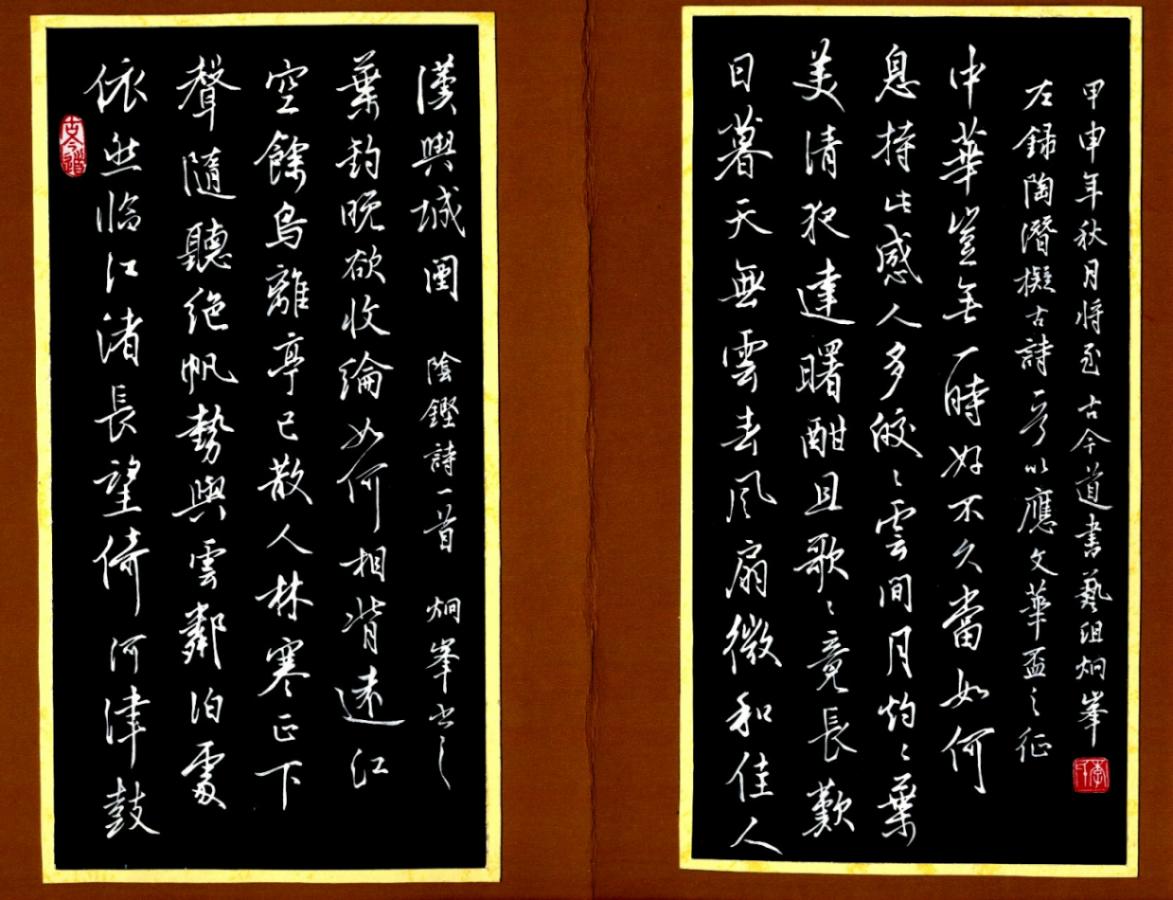 古今道
依然臨江渚長望倚河津鼓
聲隨聽絕帆勢與雲鄰泊處
空餘鳥離亭已散人林寒正下
葉釣晚欲收綸如何相背遠江
漢與城闉 陰鏗詩一首 炯峯书之
日暮天無雲春風扇微和佳人
美清夜達曙酣且歌々竟長歎
息持此感人多皎々雲間月灼々葉
中華豈無一時好不久當如何
左錄陶潛擬古詩一首以應文華盃之征
甲申年秋月將至古今道書藝炯峯